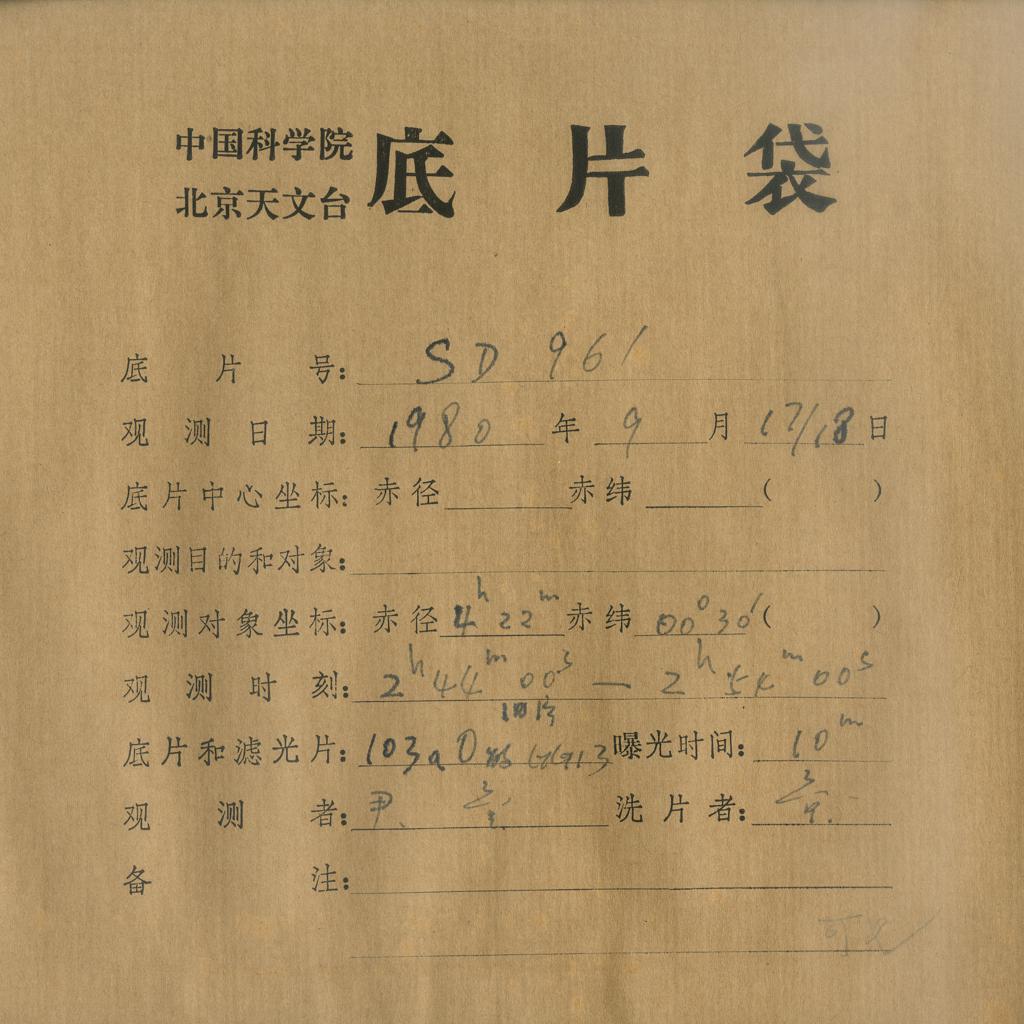 中国科学院
北京天文台 底片袋
底片号: SD 961
观测日期: 1980 年 9 月 17/18 日
底片中心坐标: 赤径 赤纬 ( )
观测目的和对象:
观测对象坐标: 赤径 4h 22m 赤纬 00°30′ ( )
观测时刻: 2h 44m 00s — 2h 54m 00s
底片和滤光片: 103aO 曝光时间: 10m
观测者: 尹 洗片者:
备注: